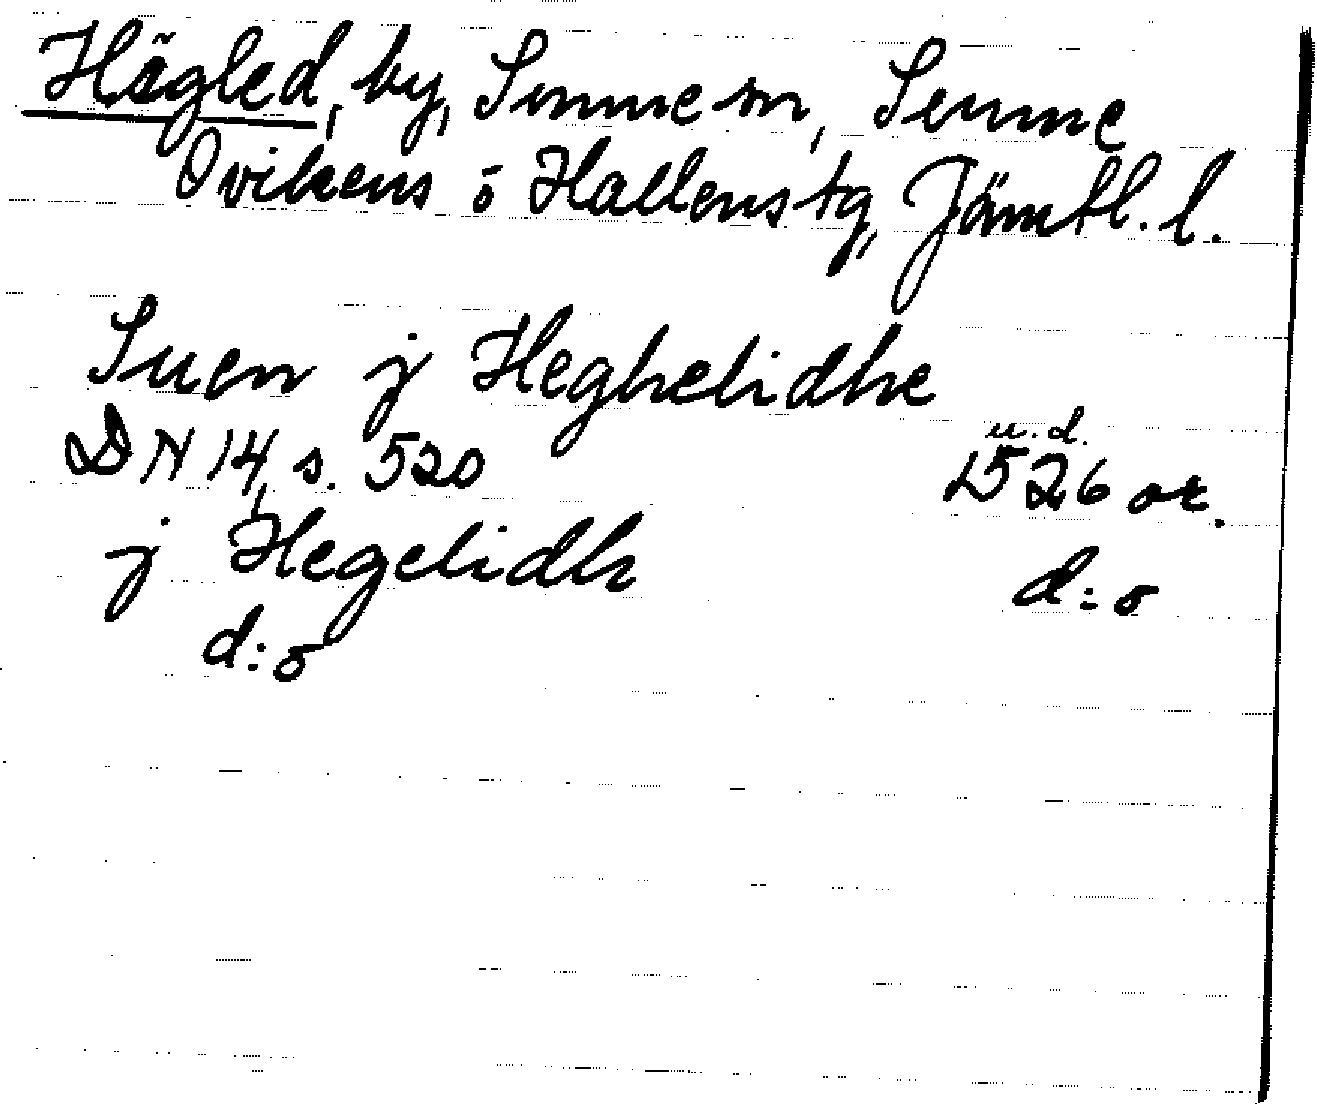 Hägled, by, Sunne sn, Sunne
Ovikens o Hallens tg, Jämtl. l.
Suen j Heghelidhe
DN 14, s. 520
u.d.
1526 or.
j Hegelidh
d:o
d:o